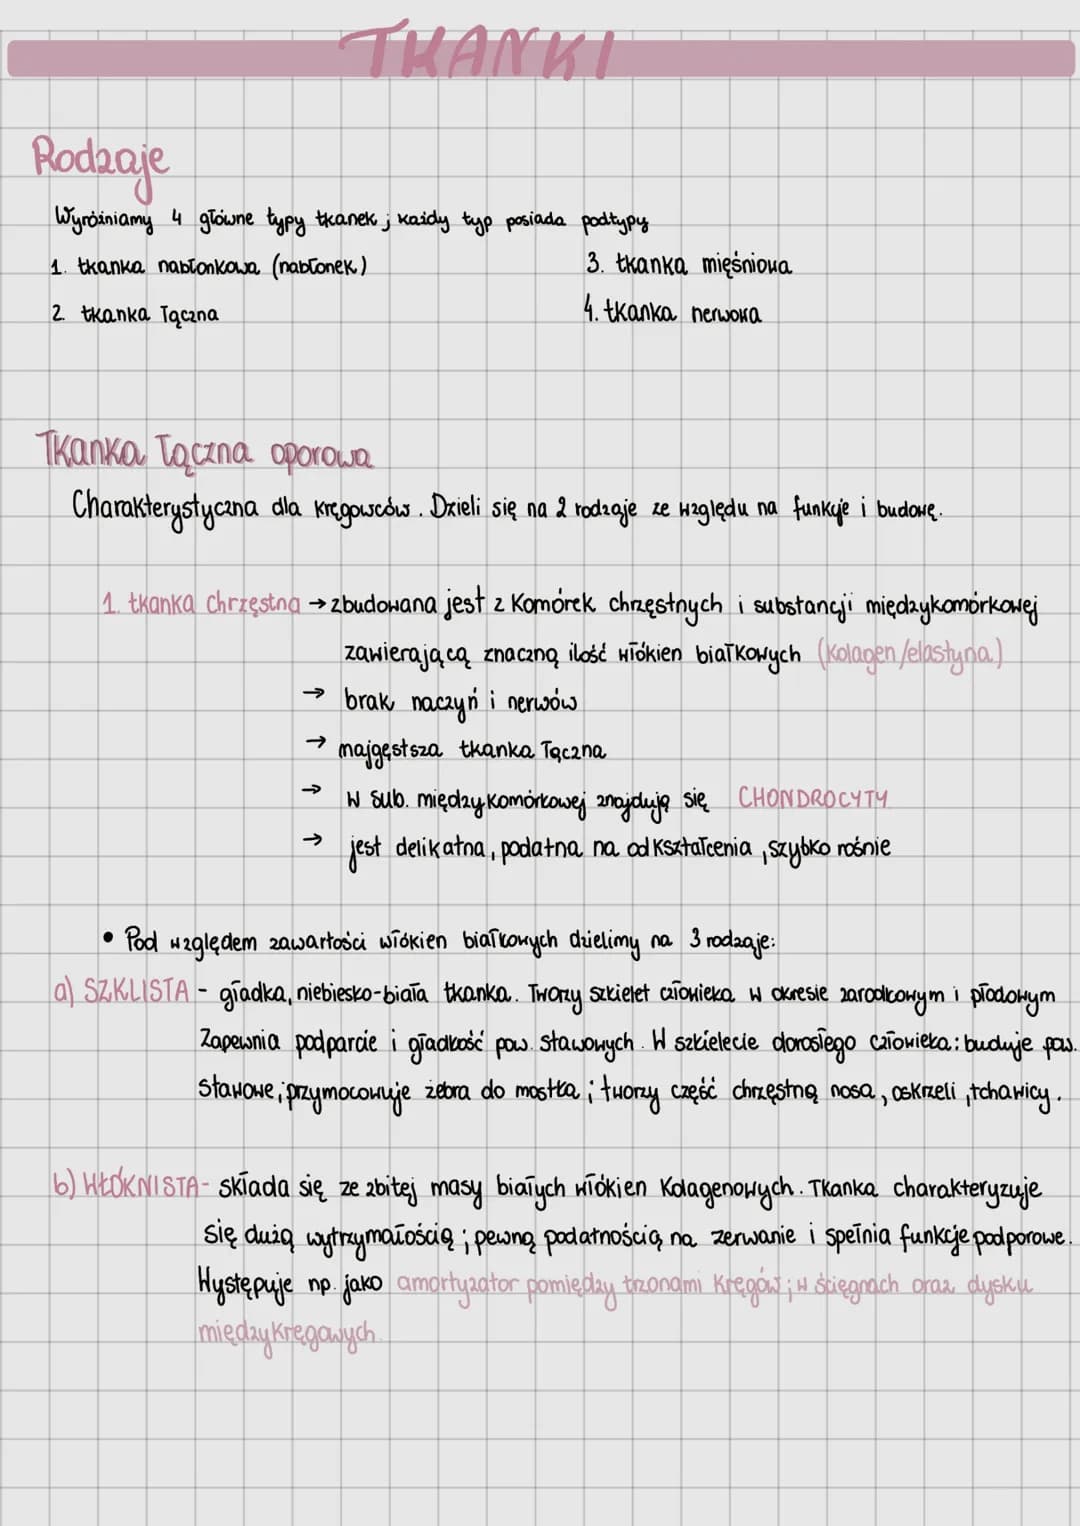 TKANKI
Rodzaje
Wyróżniamy 4 główne typy tkanek; każdy typ posiada podtypy
1. tkanka nabłonkowa (nabłonek)
3. tkanka mięśniowa
2. tkanka łączna
4. tkanka nerwowa
Tkanka łączna oporowa
Charakterystyczna dla kręgowców. Dzieli się na 2 rodzaje ze względu na funkcje i budowę.
1. tkanka chrzęstna → zbudowana jest z komórek chrzęstnych i substancji międzykomórkowej
zawierającą znaczną ilość włókien białkowych (kolagen/elastyna)
→ brak naczyń i nerwów
→ majgęstsza tkanka łączna
→ w sub. międzykomórkowej znajdują się CHONDROCYTY
→ jest delikatna, podatna na odkształcenia, szybko rośnie
• Pod względem zawartości włókien białkowych dzielimy na 3 rodzaje:
a) SZKLISTA - gładka, niebiesko-biała tkanka. Tworzy szkielet człowieka w okresie zarodkowym i płodowym
Zapewnia podparcie i gładkość pow. stawowych. W szkielecie dorosłego człowieka: buduje pow.
stawowe; przymocowuje żebra do mostka; tworzy część chrzęstną nosa, oskrzeli, tchawicy.
b) WŁÓKNISTA - składa się ze zbitej masy białych włókien kolagenowych. Tkanka charakteryzuje
się dużą wytrzymałością; pewną podatnością na zerwanie i spełnia funkcje podporowe.
Występuje np. jako amortyzator pomiędzy trzonami kręgów; w ścięgnach oraz dysku
międzykręgowych.